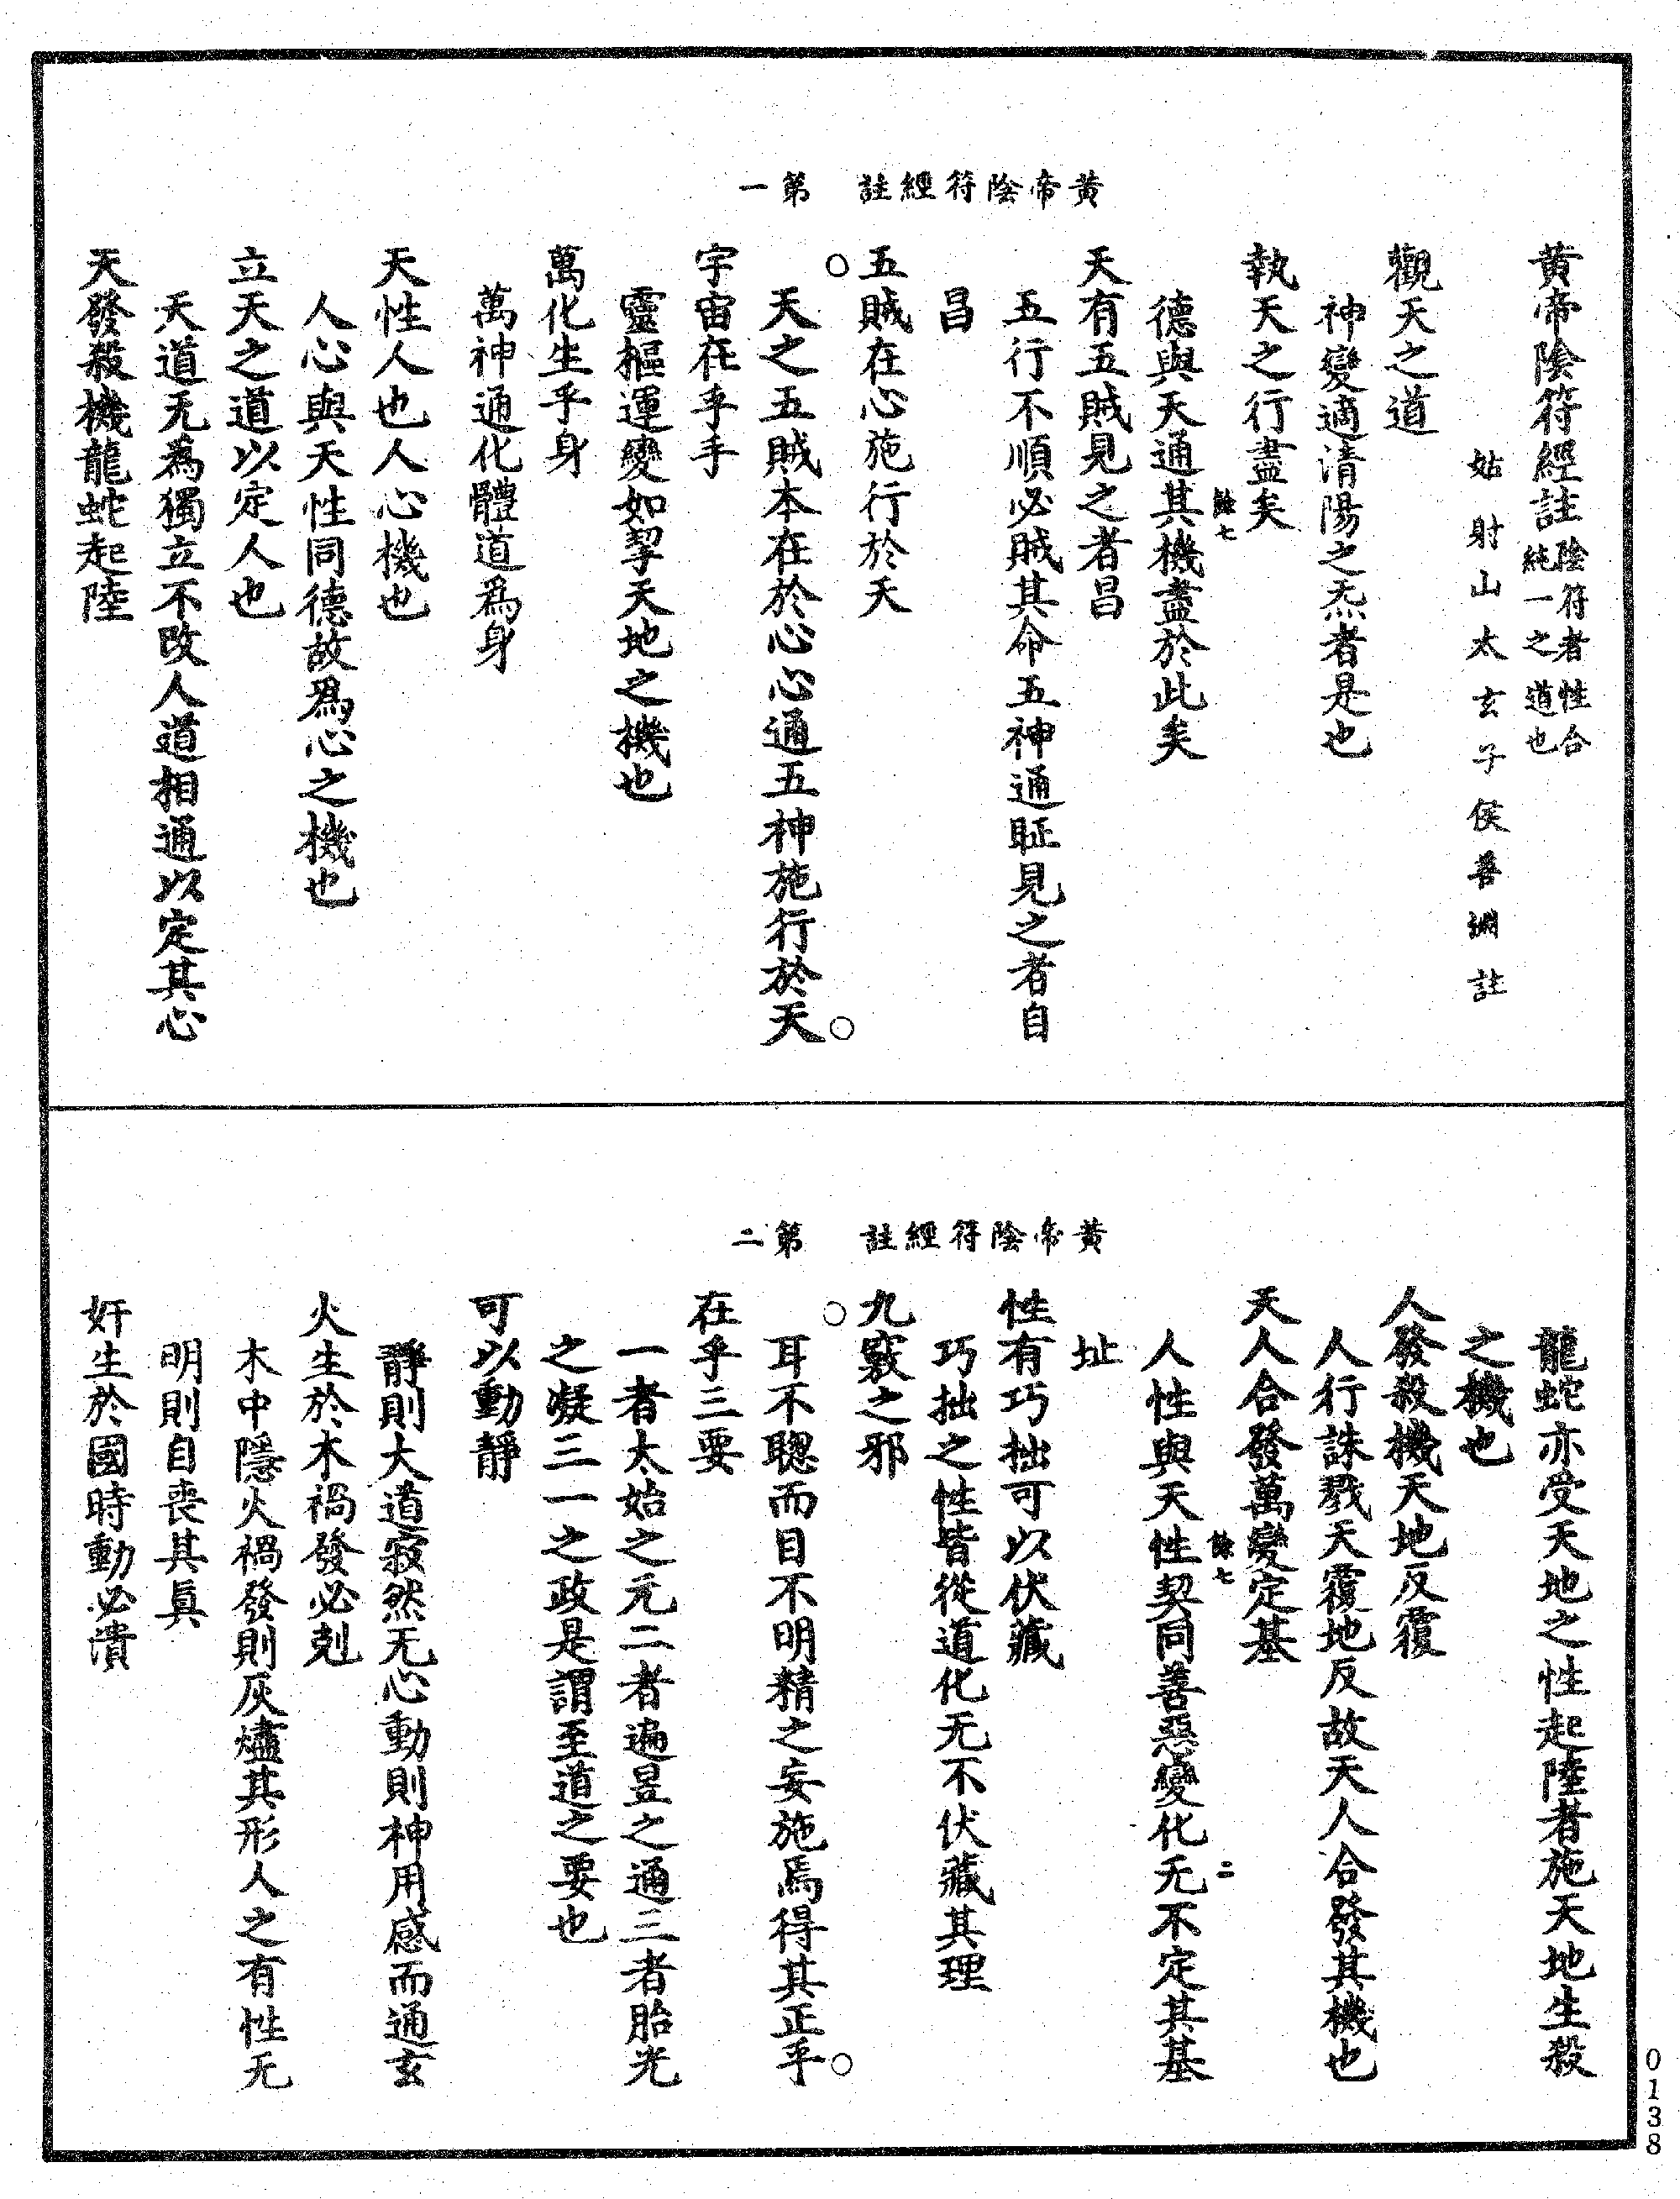 黃帝陰符經註　第一
黃帝陰符經註陰符者性合純一之道也
姑射山太玄子侯善淵註
觀天之道
神變適清陽之炁者是也
執天之行盡矣
餘七
德與天通其機盡於此矣
天有五賊見之者昌
五行不順必賊其命五神通眐見之者自
昌
五賊在心施行於天
天之五賊本在於心心通五神施行於天
宇宙在乎手
靈樞運變如挈天地之機也
萬化生乎身
萬神通化體道爲身
天性人也人心機也
人心與天性同德故爲心之機也
立天之道以定人也
天道无爲獨立不改人道相通以定其心
天發殺機龍蛇起陸
黃帝陰符經註　第二
龍蛇亦受天地之性起陸者施天地生殺
之機也
人發殺機天地反覆
人行誅戮天覆地反故天人合發其機也
天人合發萬變定基
餘七　二
人性與天性契同善惡變化无不定其基
址
性有巧拙可以伏藏
巧拙之性皆從道化无不伏藏其理
九竅之邪
耳不聰而目不明精之妄施焉得其正乎
在乎三要
一者太始之元二者遍昱之通三者胎光
之凝三一之政是謂至道之要也
可以動靜
靜則大道寂然无心動則神用感而通玄
火生於木禍發必剋
木中隱火禍發則灰燼其形人之有性无
明則自喪其眞
奸生於國時動必潰
0138